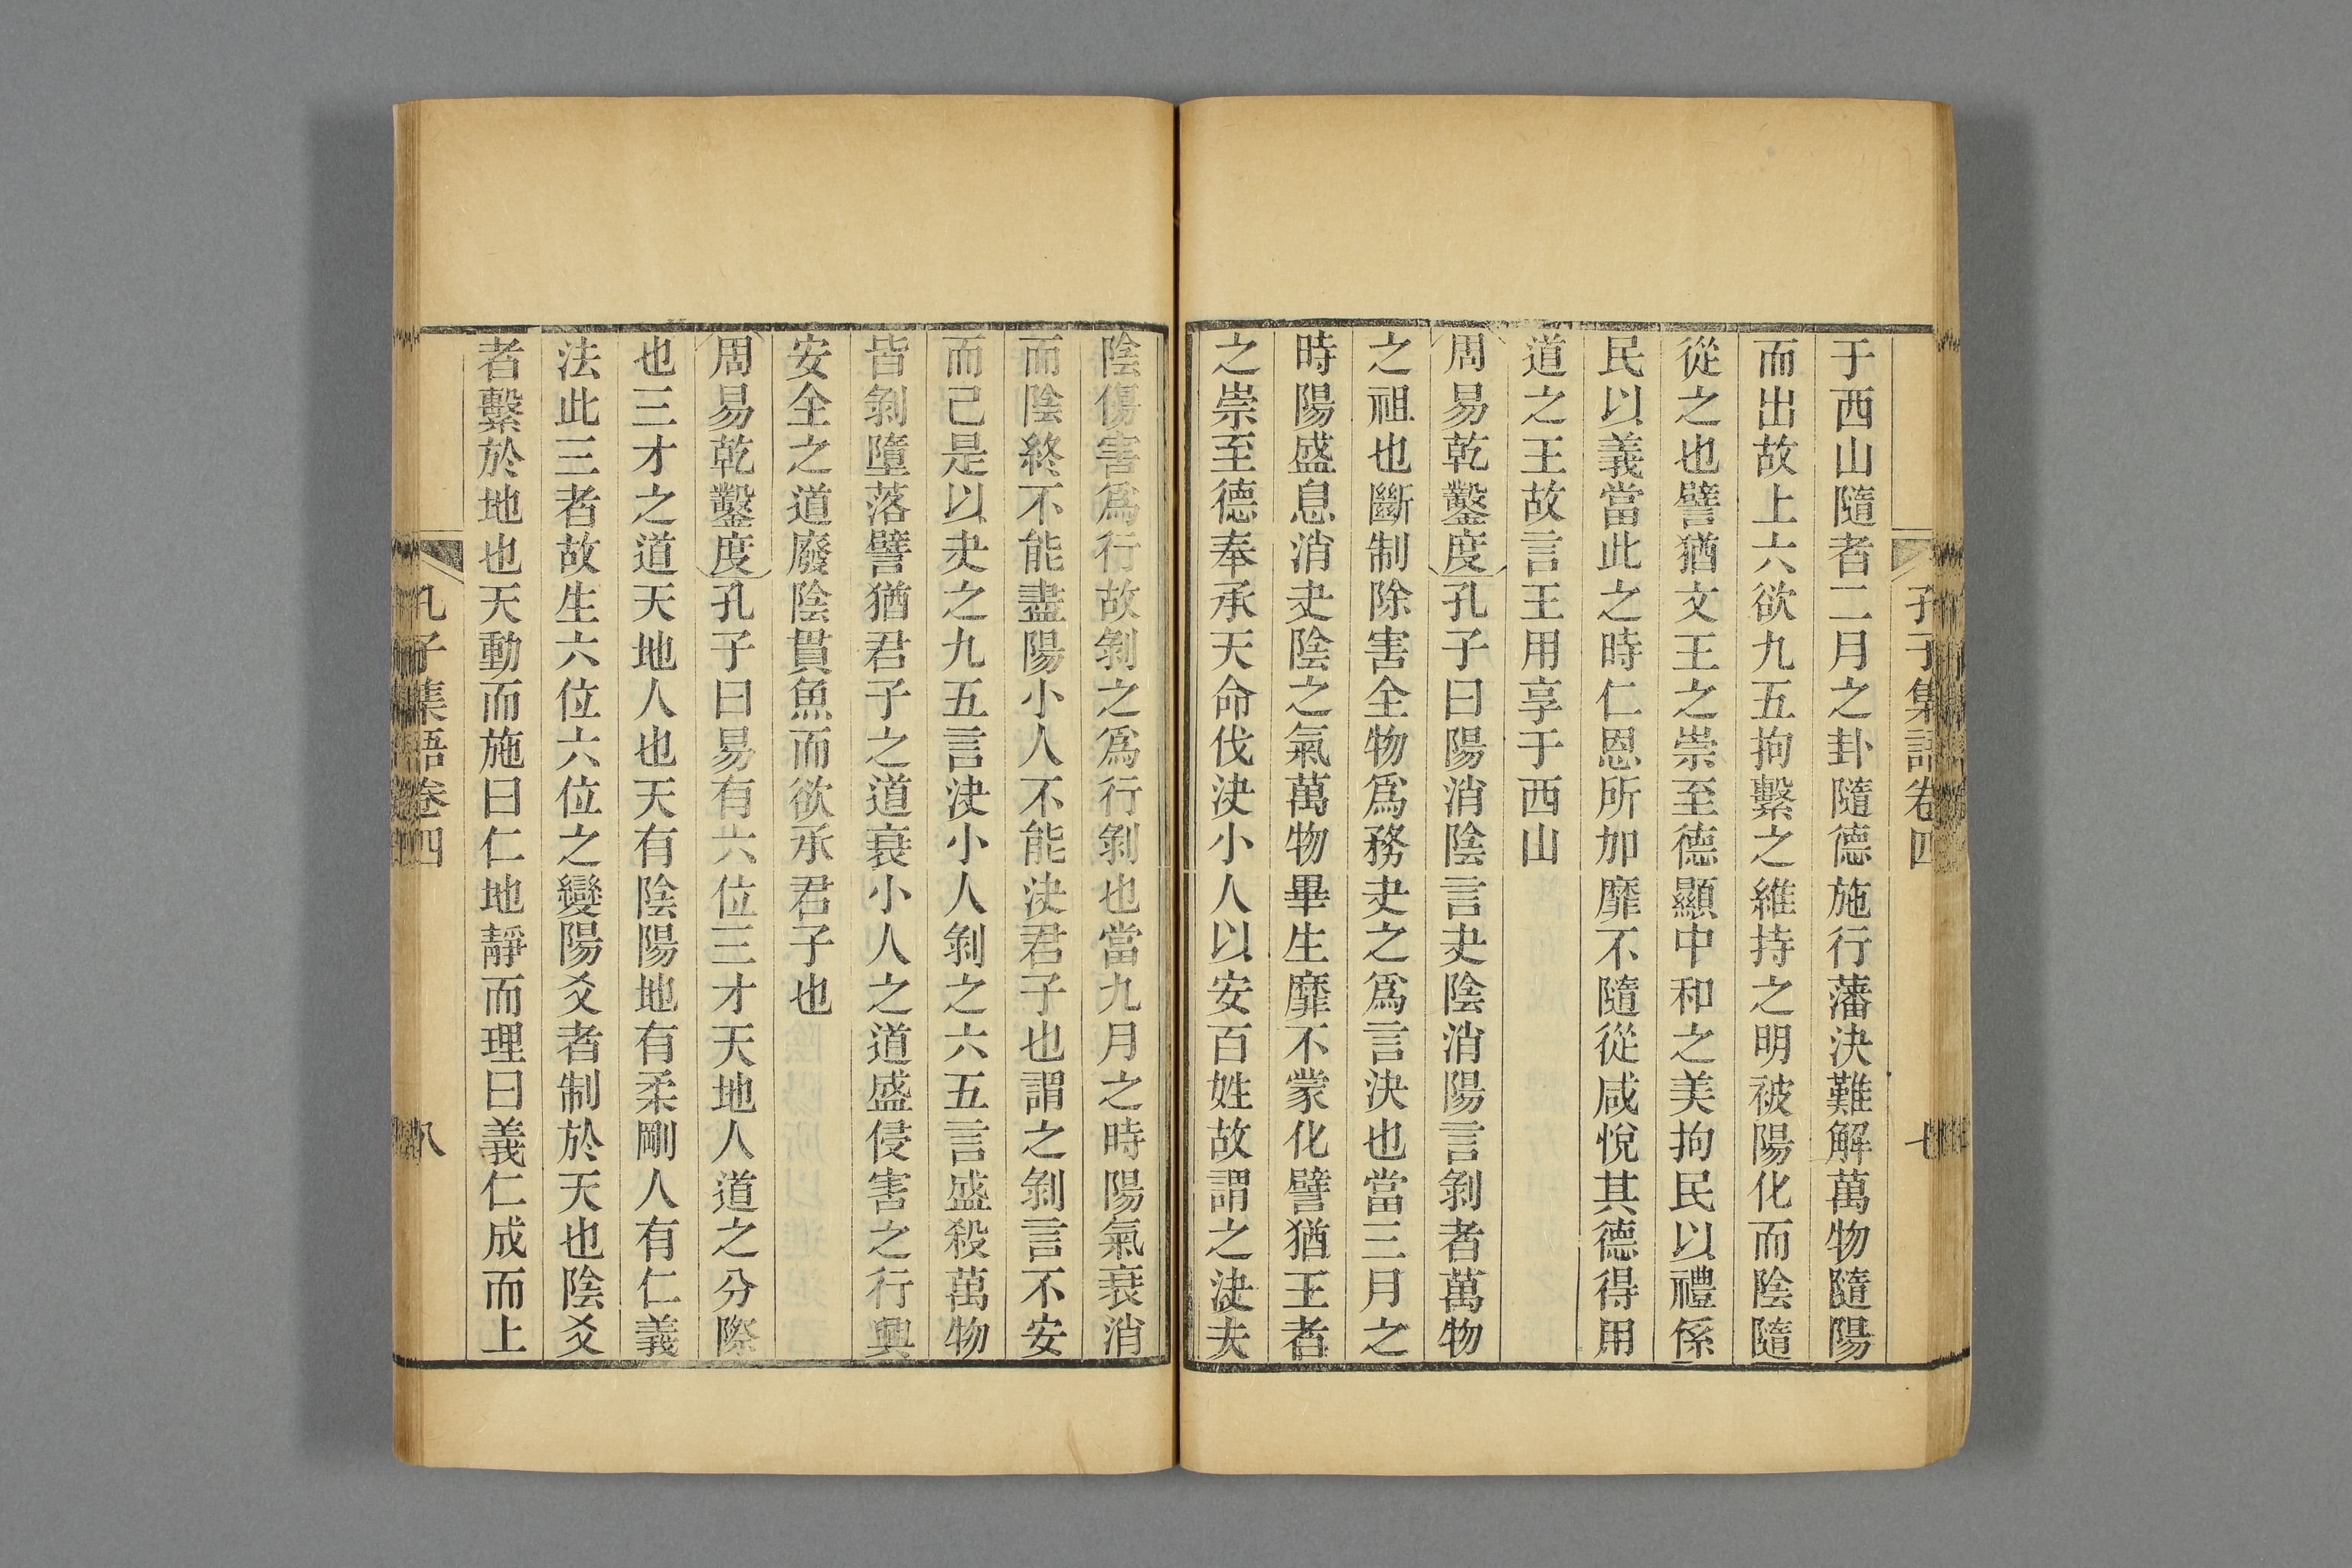 孔子集語卷四
七
于西山隨者二月之卦隨德施行藩決難解萬物隨陽
而出故上六欲九五拘繫之維持之明被陽化而陰隨
從之也譬猶文王之崇至德顯中和之美拘民以禮係
民以義當此之時仁恩所加靡不隨從咸悅其德得用
道之王故言王用享于西山
周易乾鑿度孔子曰陽消陰言夬陰消陽言剝者萬物
之祖也斷制除害全物爲務夬之爲言決也當三月之
時陽盛息消夬陰之氣萬物畢生靡不蒙化譬猶王者
之崇至德奉承天命伐決小人以安百姓故謂之決夫
陰傷害爲行故剝之爲行剝也當九月之時陽氣衰消
而陰終不能盡陽小人不能決君子也謂之剝言不安
而已是以夬之九五言決小人剝之六五言盛殺萬物
皆剝墮落譬猶君子之道衰小人之道盛侵害之行興
安全之道廢陰貫魚而欲承君子也
周易乾鑿度孔子曰易有六位三才天地人道之分際
也三才之道天地人也天有陰陽地有柔剛人有仁義
法此三者故生六位六位之變陽爻者制於天也陰爻
者繫於地也天動而施曰仁地靜而理曰義仁成而上
孔子集語卷四
八